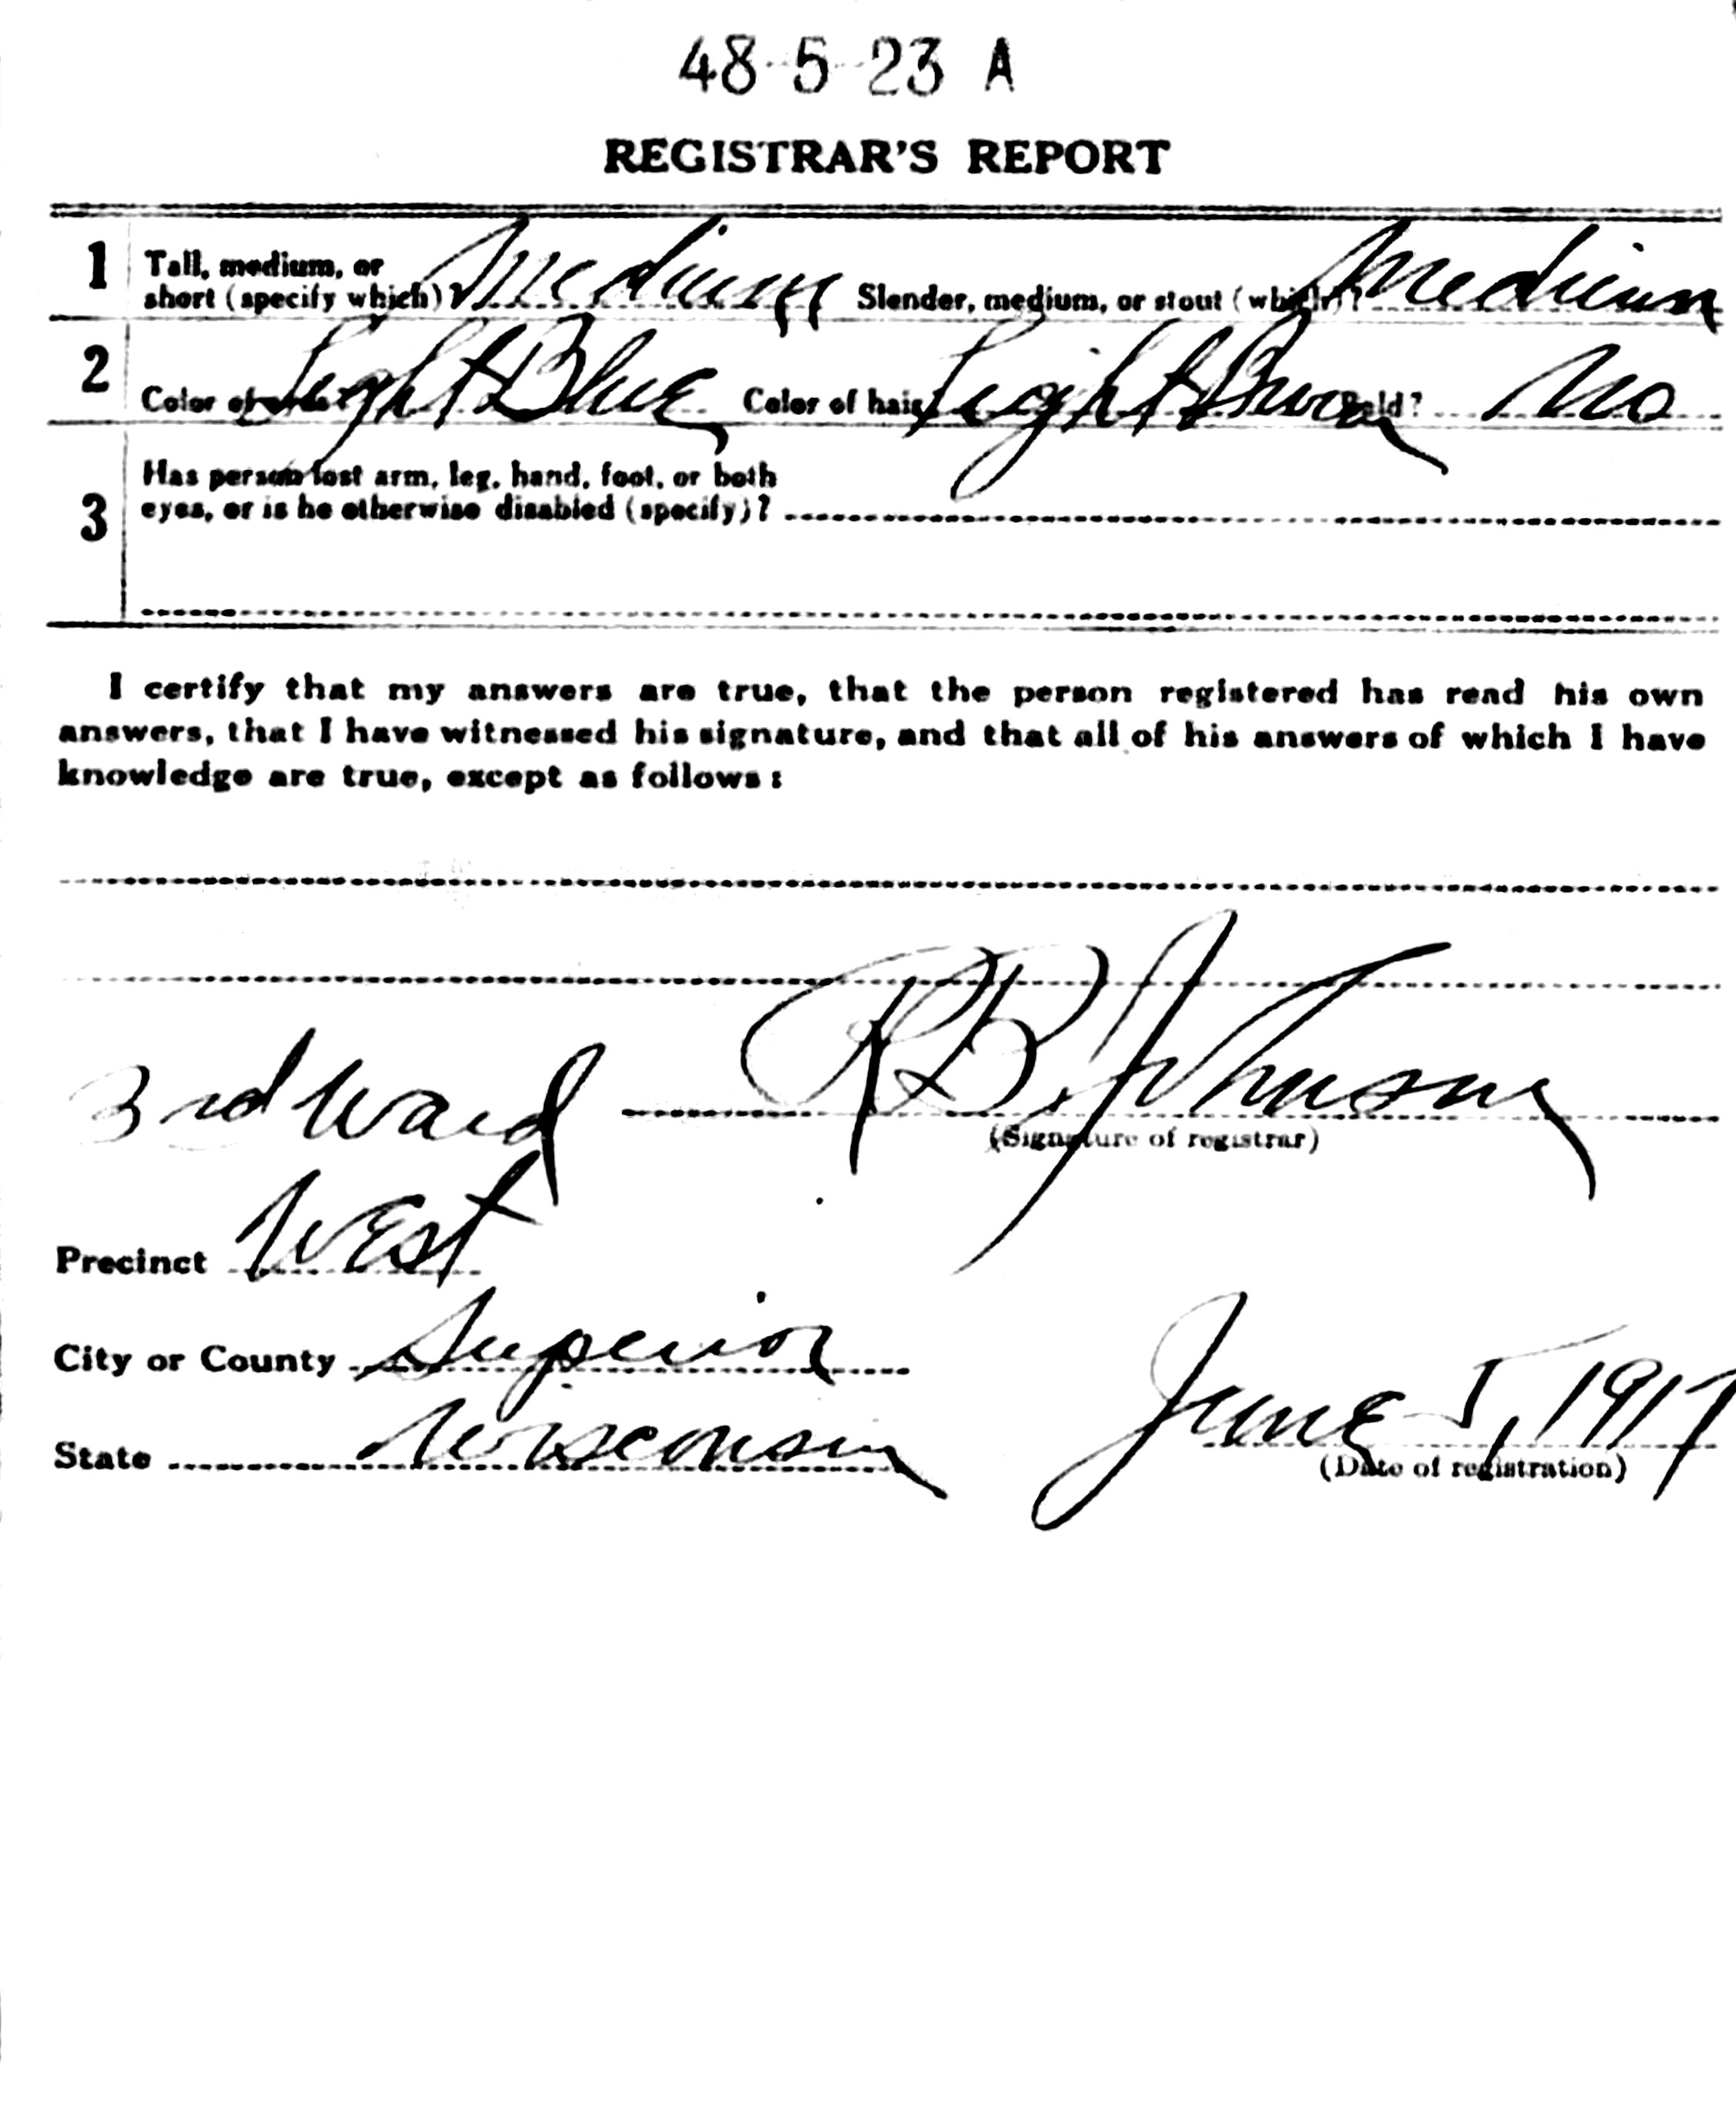 48-5-23 A
REGISTRAR'S REPORT
1 Tall, medium, or
short (specify which)? Medium Slender, medium, or stout (which)? Medium
2 Color of eyes Light Blue Color of hair Light Brown Bald? No
Has person lost arm, leg, hand, foot, or both
3 eyes, or is he otherwise disabled (specify)?
I certify that my answers are true, that the person registered has read his own
answers, that I have witnessed his signature, and that all of his answers of which I have
knowledge are true, except as follows:
3rd Ward R B Johnson
(Signature of registrar)
Precinct West
City or County Superior
State Wisconsin June 5, 1917
(Date of registration)